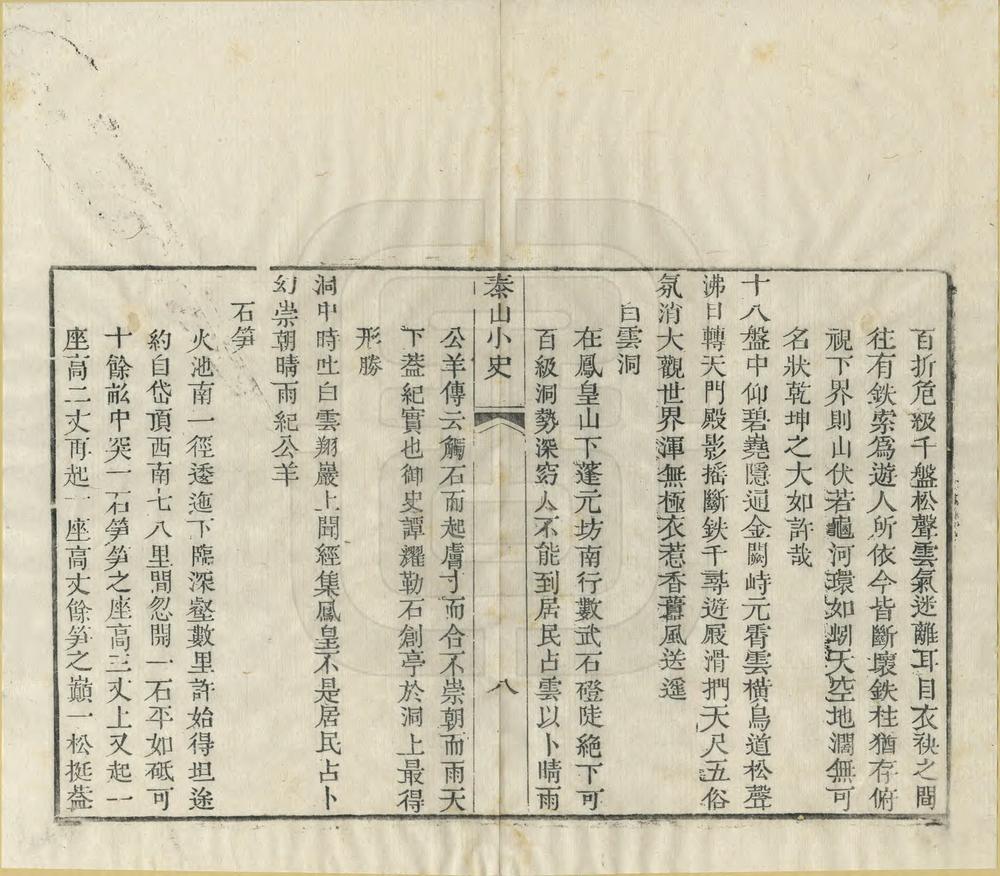 百折危級千盤松聲雲氣迷離耳目衣袂之間
往有鉄索爲遊人所依今皆斷壞鉄柱猶存俯
視下界則山伏若龜河環如蚓天空地濶無可
名狀乾坤之大如許哉
十八盤中仰碧嶤隱逈金闕峙元霄雲橫鳥道松聲
沸日轉天門殿影搖斷鉄千尋遊屐滑捫天尺五俗
氛消大觀世界渾無極衣惹香蘿風送遥
白雲洞
在鳳皇山下蓬元坊南行數武石磴陡絶下可
百級洞勢深窈人不能到居民占雲以卜晴雨
泰山小史
八
公羊傳云觸石而起膚寸而合不崇朝而雨天
下葢紀實也御史譚耀勒石創亭於洞上最得
形勝
洞中時吐白雲翔巖上聞經集鳳皇不是居民占卜
幻崇朝晴雨紀公羊
石笋
火池南一徑逶迤下臨深壑數里許始得坦途
約自岱頂西南七八里間忽開一石平如砥可
十餘畝中突一石笋笋之座高三丈上又起一
座高二丈再起一座高丈餘笋之巔一松挺葢